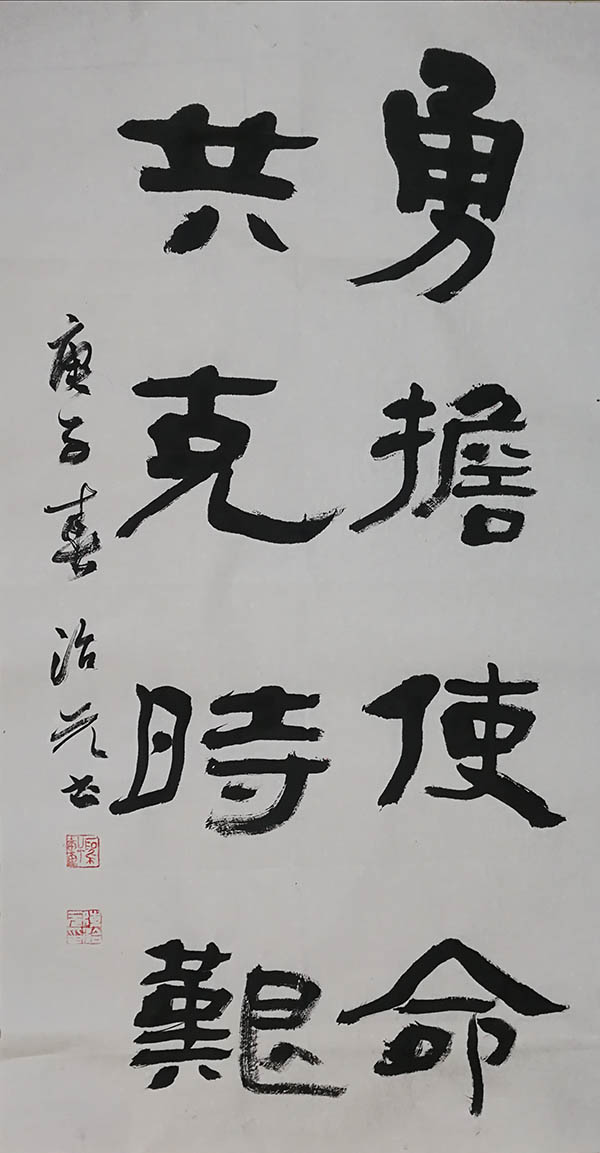 勇擔使命
共克時艱
庚子春 治元書